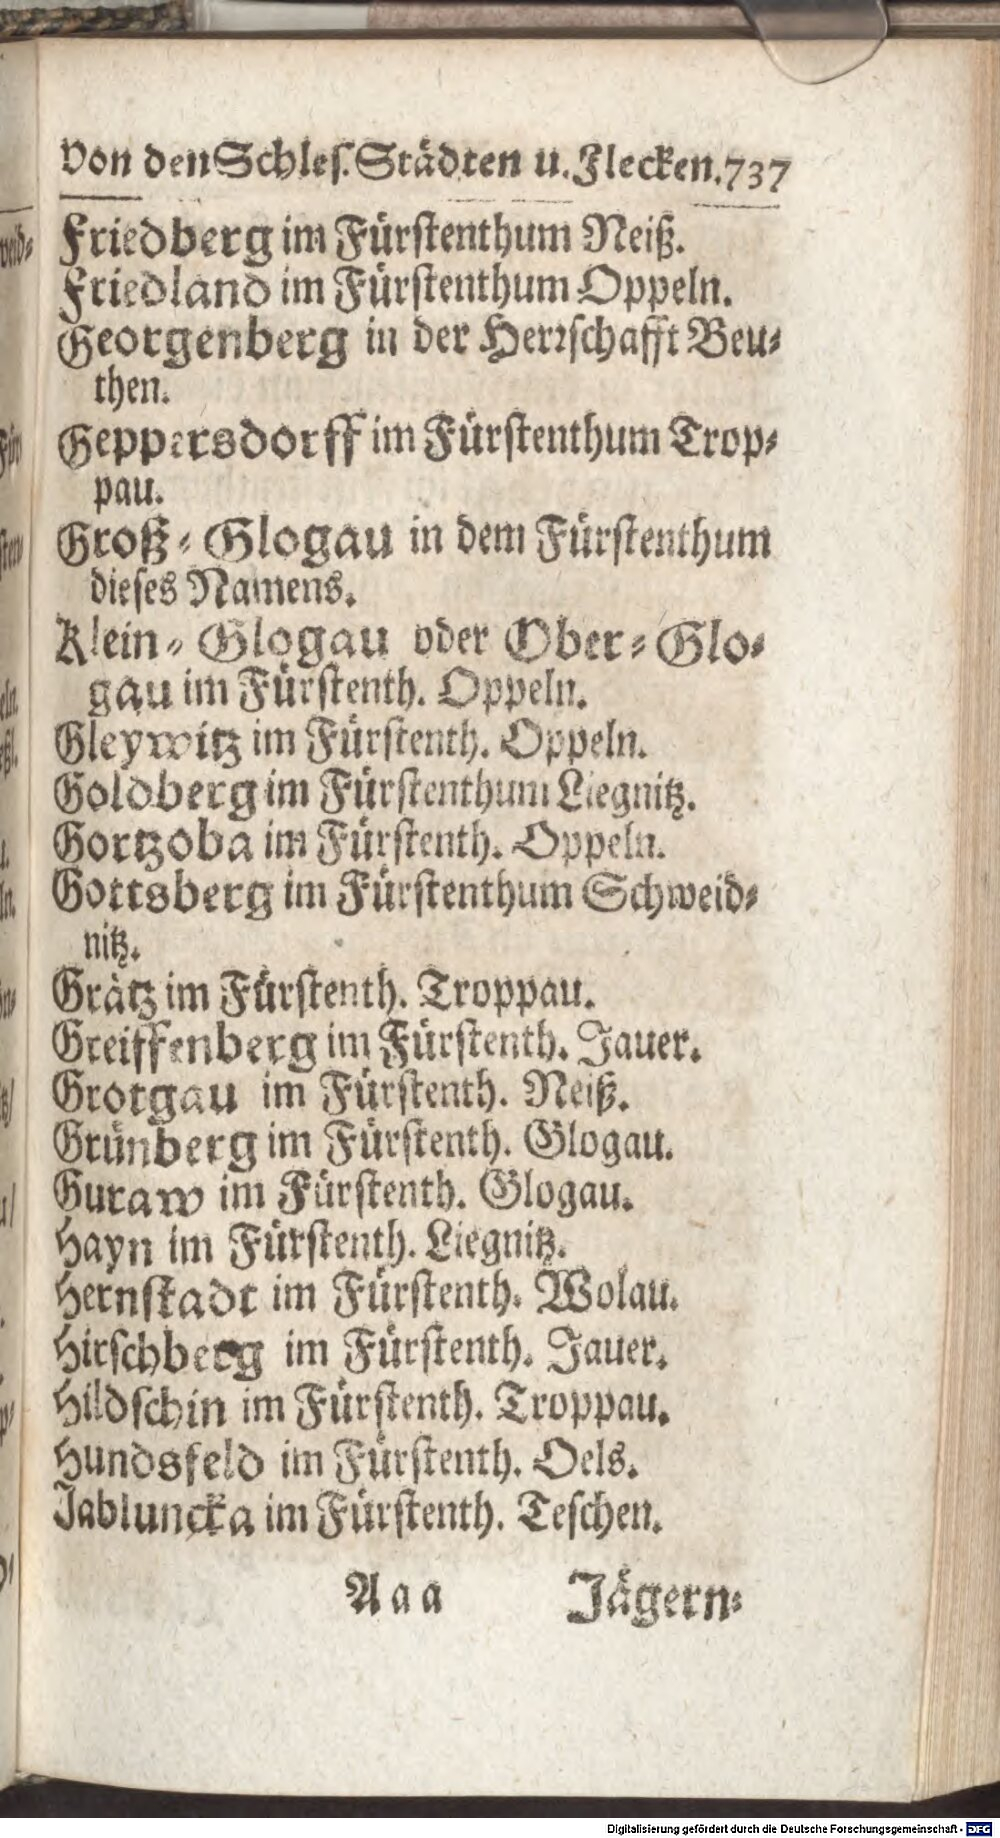 Von den Schles. Städten u. Flecken. 737
Friedberg im Fürstenthum Neiß.
Friedland im Fürstenthum Oppeln.
Georgenberg in der Herrschafft Beu-
then.
Geppersdorff im Fürstenthum Trop-
pau.
Groß-Glogau in dem Fürstenthum
dieses Namens.
Klein-Glogau oder Ober-Glo-
gau im Fürstenth. Oppeln.
Gleywitz im Fürstenth. Oppeln.
Goldberg im Fürstenthum Liegnitz.
Gortzoba im Fürstenth. Oppeln.
Gottsberg im Fürstenthum Schweid-
nitz.
Grätz im Fürstenth. Troppau.
Greiffenberg im Fürstenth. Jauer.
Grotgau im Fürstenth. Neiß.
Grünberg im Fürstenth. Glogau.
Guraw im Fürstenth. Glogau.
Hayn im Fürstenth. Liegnitz.
Hernstadt im Fürstenth. Wolau.
Hirschberg im Fürstenth. Jauer.
Hildschin im Fürstenth. Troppau.
Hundsfeld im Fürstenth. Oels.
Jabluncka im Fürstenth. Teschen.
Aaa Jägern-
Digitalisierung gefördert durch die Deutsche Forschungsgemeinschaft - DFG